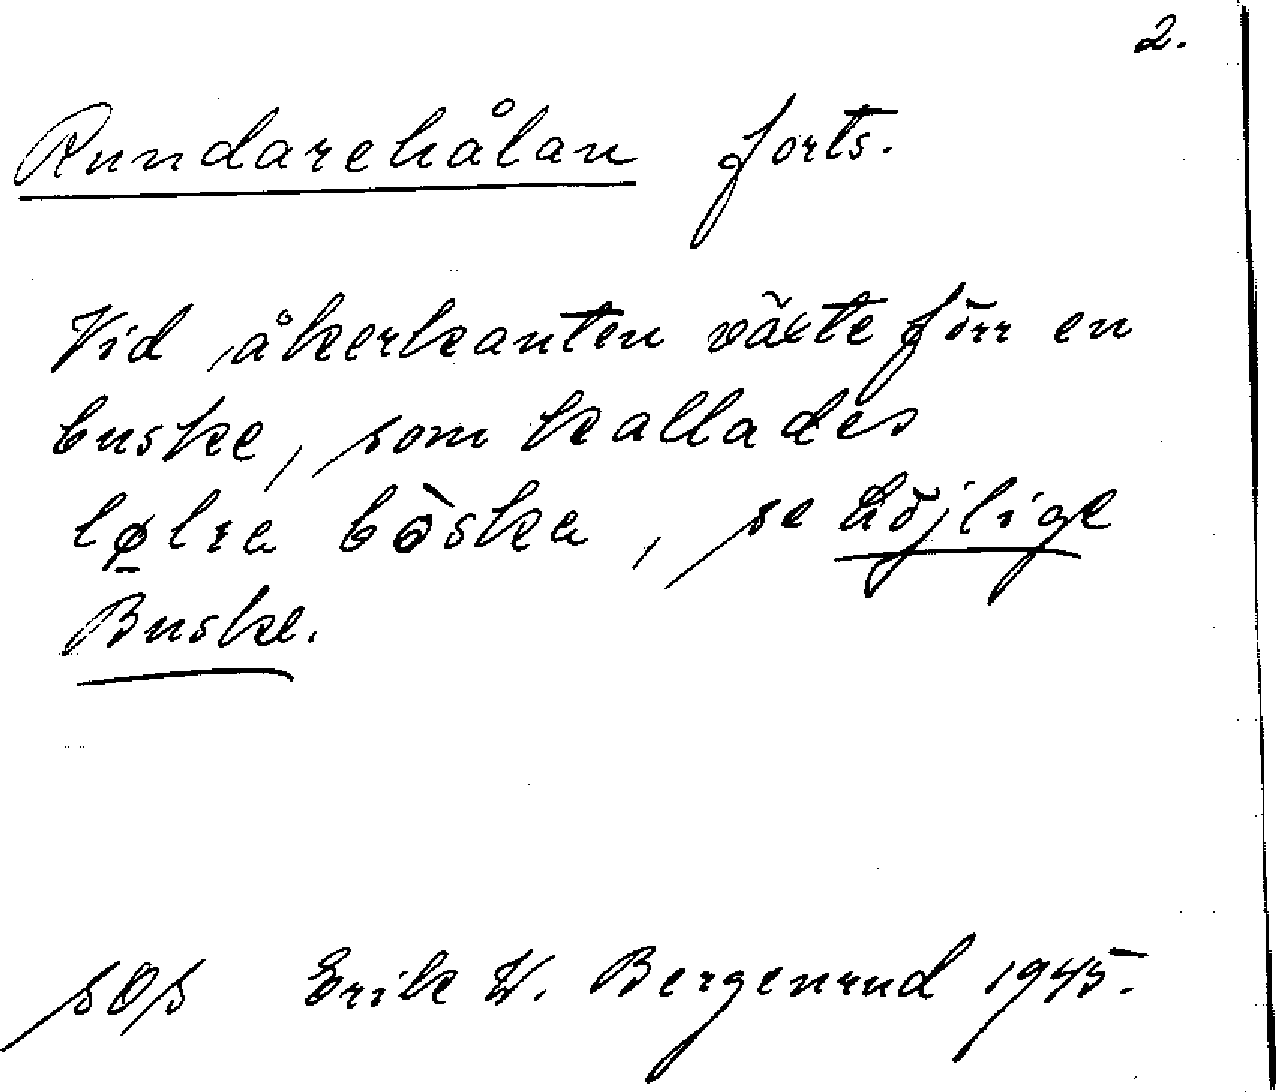 2.
Rundarehålan forts.
Vid åkerkanten växte förr en
buske, som kallades
bòska, se Höjlige
Buske.
Erik W. Bergenrud 1945.